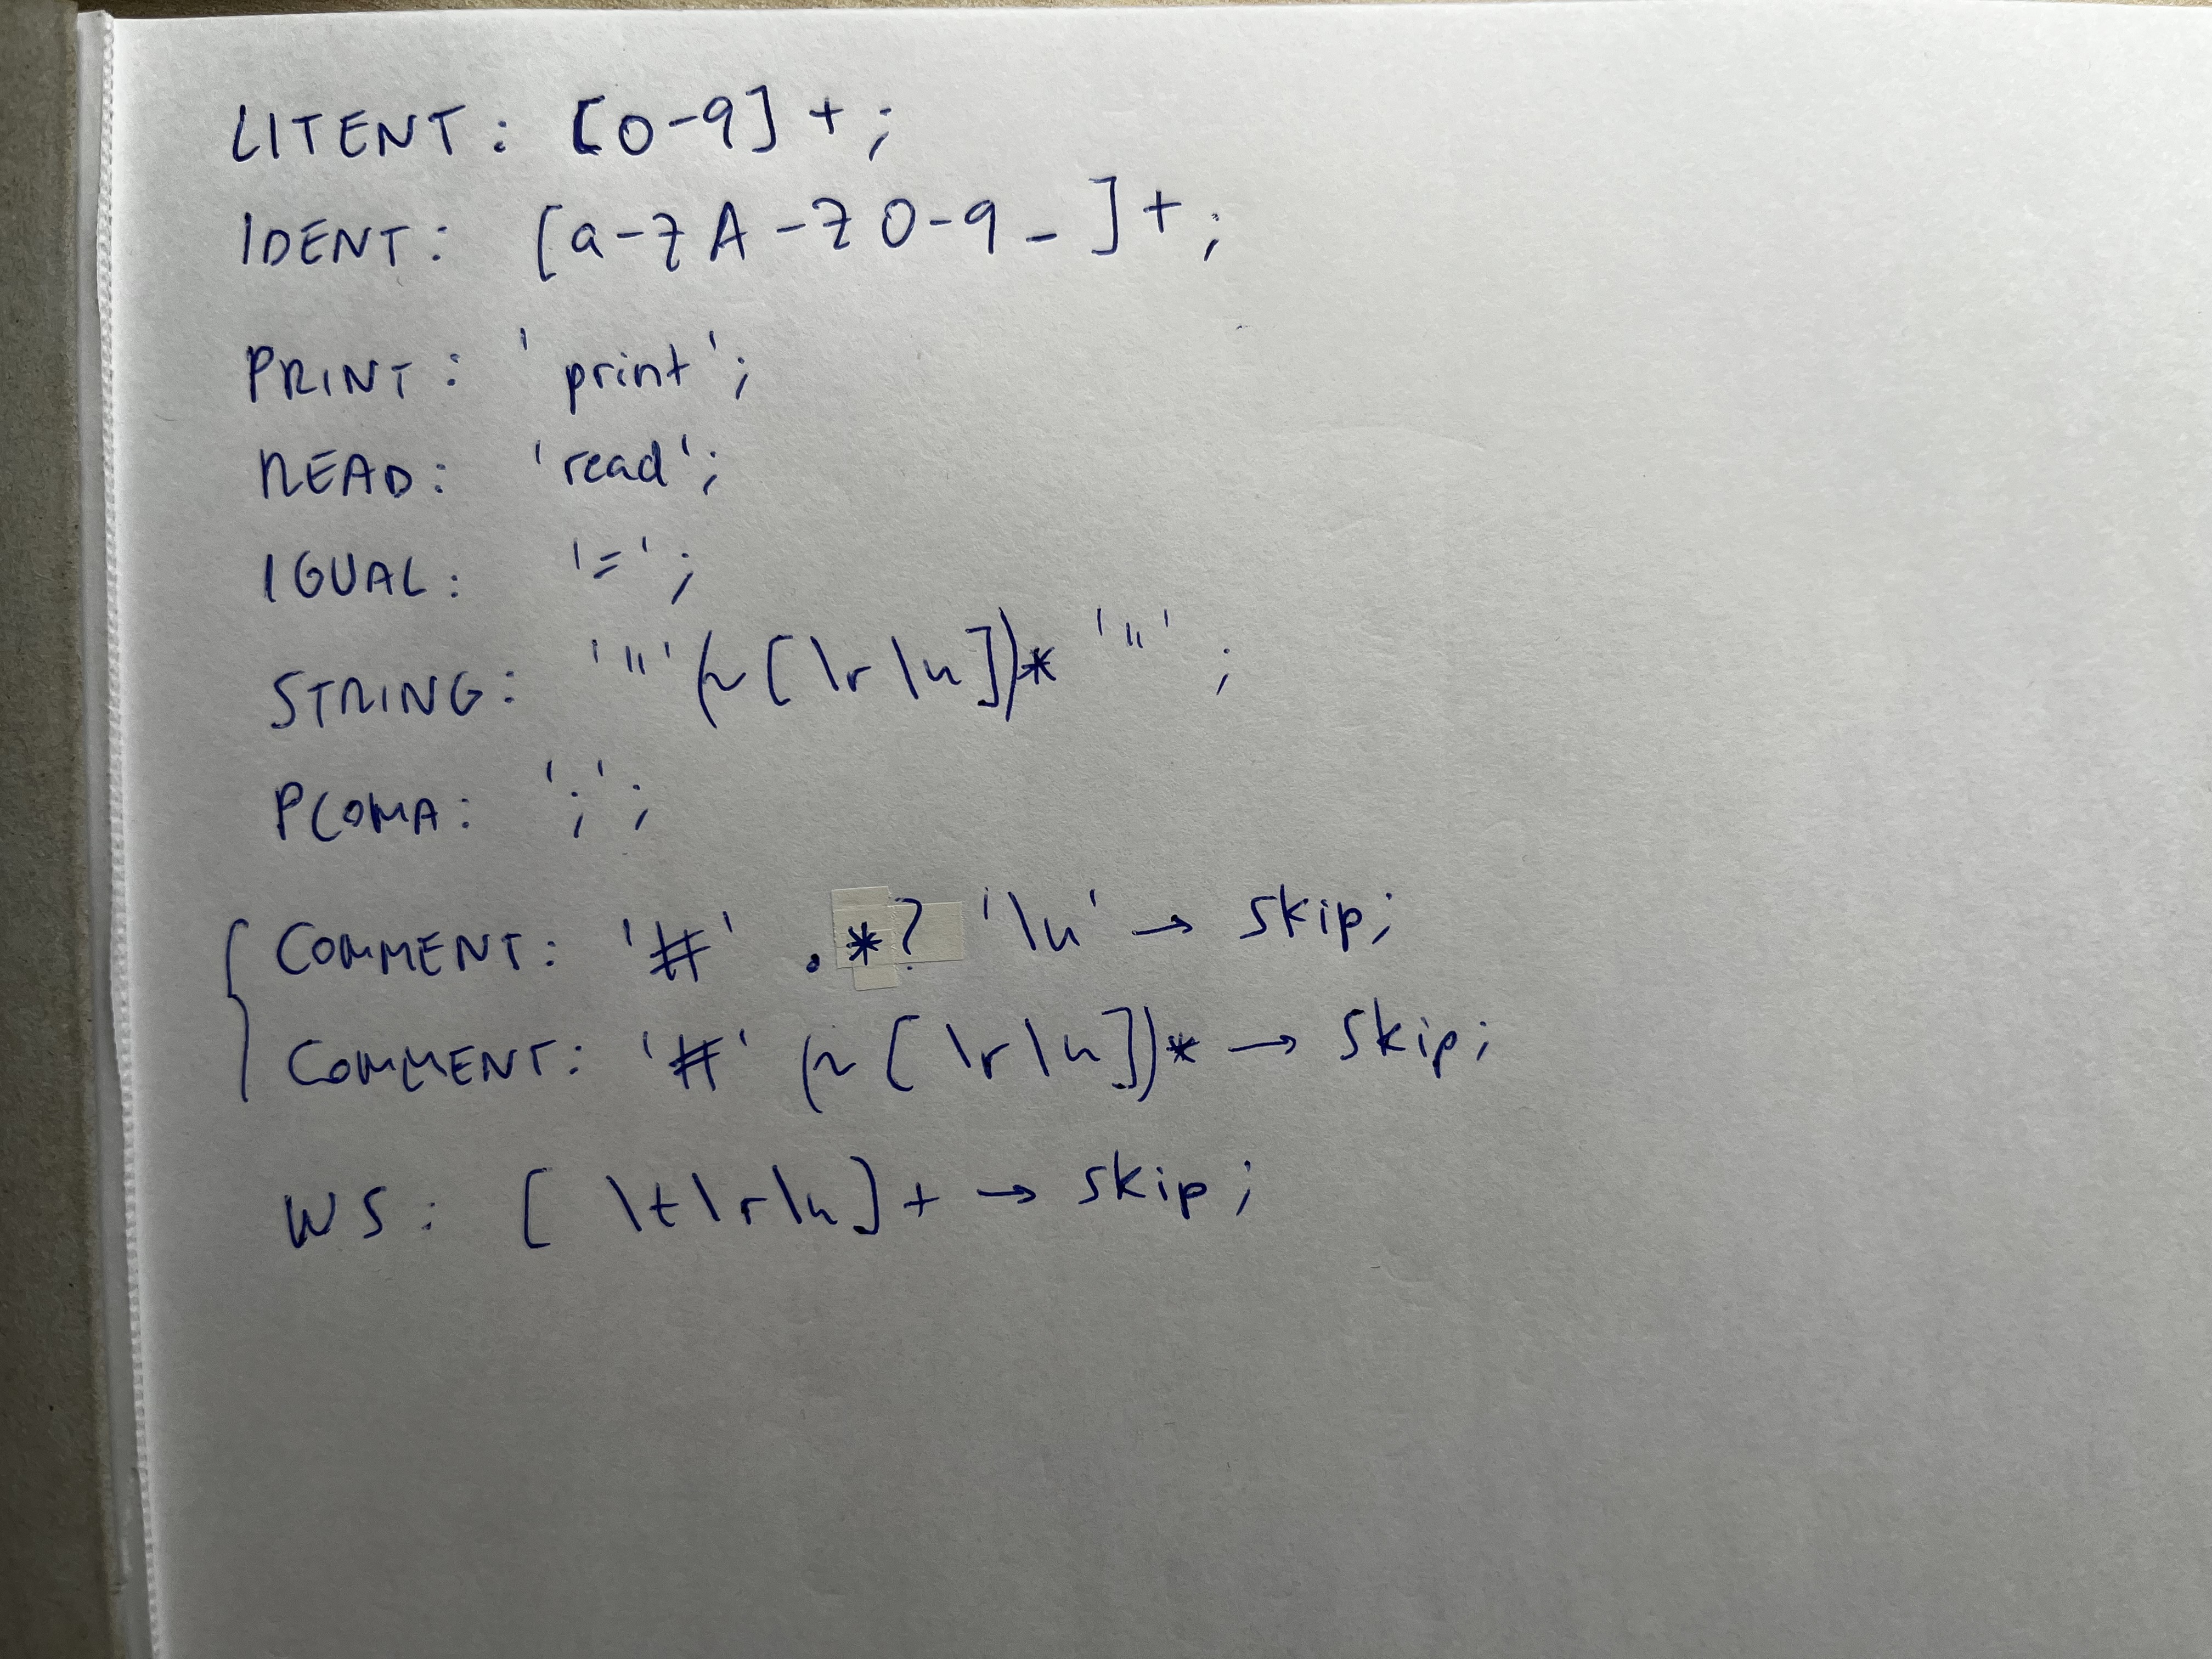 LITENT: [0-9]+;
IDENT: [a-zA-Z0-9_]+;
PRINT: 'print';
READ: 'read';
IGUAL: '=';
STRING: '"' (~[\r\n])* '"';
PCOMA: ';';
{ COMMENT: '#' .*? '\n' → skip;
COMMENT: '#' (~[\r\n])* → skip;
WS: [ \t\r\n]+ → skip;